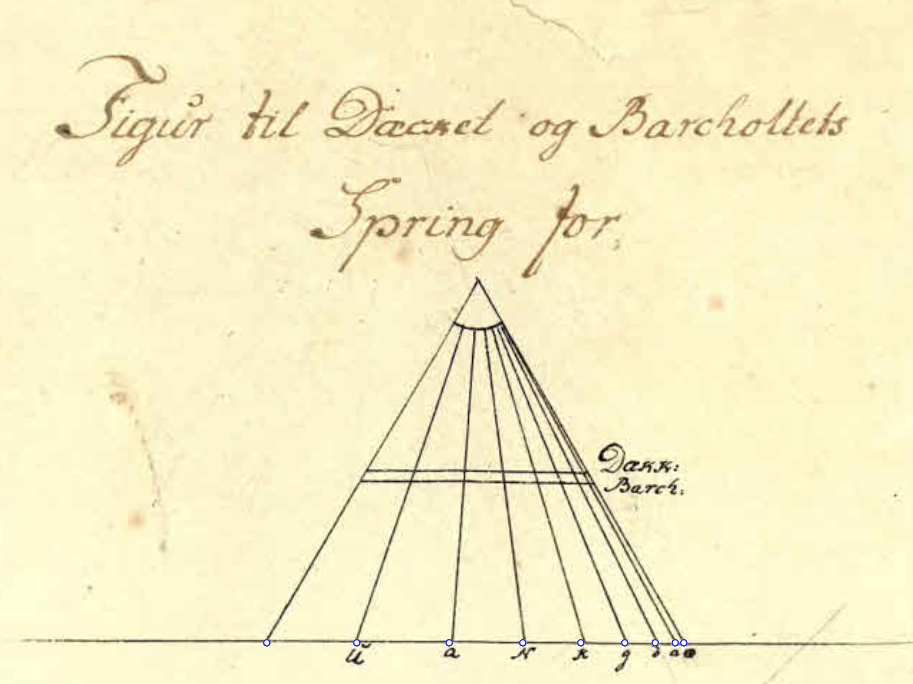 Figur til Dæcket og Barcholtets
Spring for
Dækk:
Barch:
U a N k g d a æ